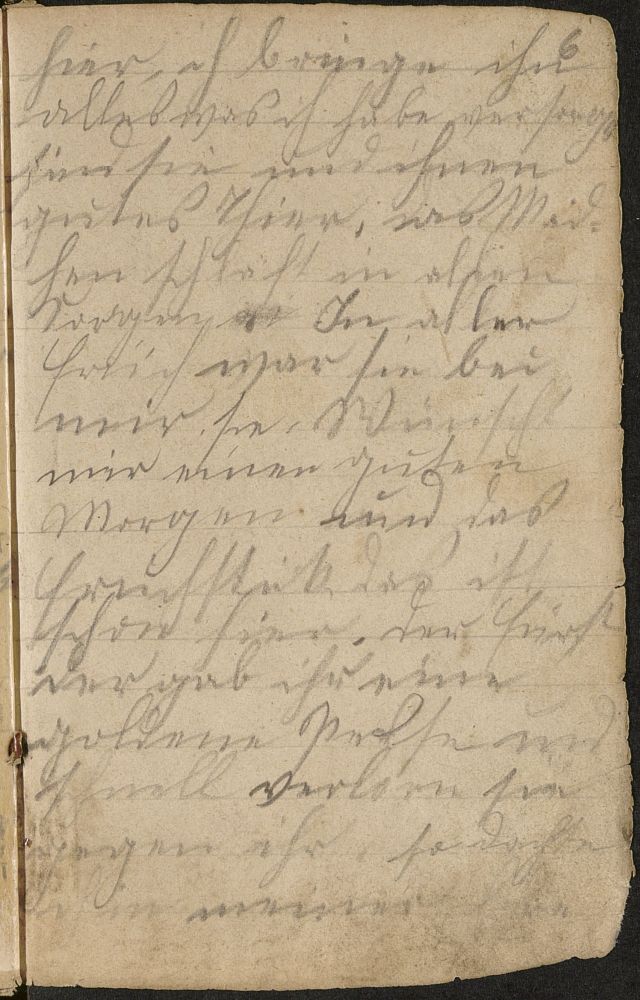 hier, ich bringe ihn 6
alles was ich habe, versorgt
sind sie und ihnen
gutes Thier, das Mäd-
hen schläft in allen
Sorgen. In aller
früh war sie bei
mir, sie Wünscht
mir einen guten
Morgen und das
Früchstück das ist
schon hier. der Fürst
der gab ihr eine
goldene und
schnell verlorn sie
gegen ihr, so dachte
in meiner